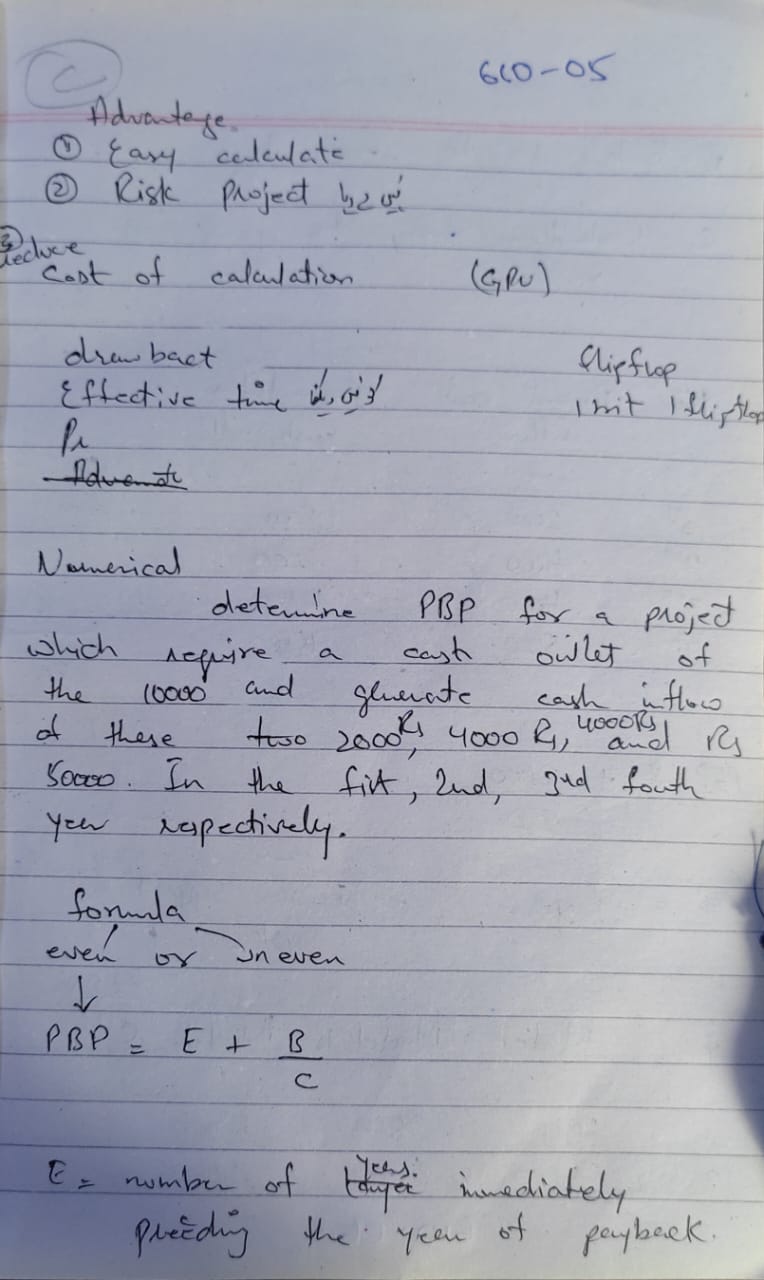 C
610-05
Advantage
① Easy calculate
② Risk project نہیں دیتا
③ reduce
Cost of calculation (GPU)
drawback
flipflop
Effective time
1 bit 1 flipflop
Numerical
determine PBP for a project
which require a cash outlet of
the 10000 and generate cash inflow
of these two 2000Rs, 4000 Rs, 4000Rs and Rs
50000. In the first, 2nd, 3rd fouth
year respectively.
formula
even or uneven
↓
PBP = E + B/C
E = number of years immediately
preeding the year of payback.